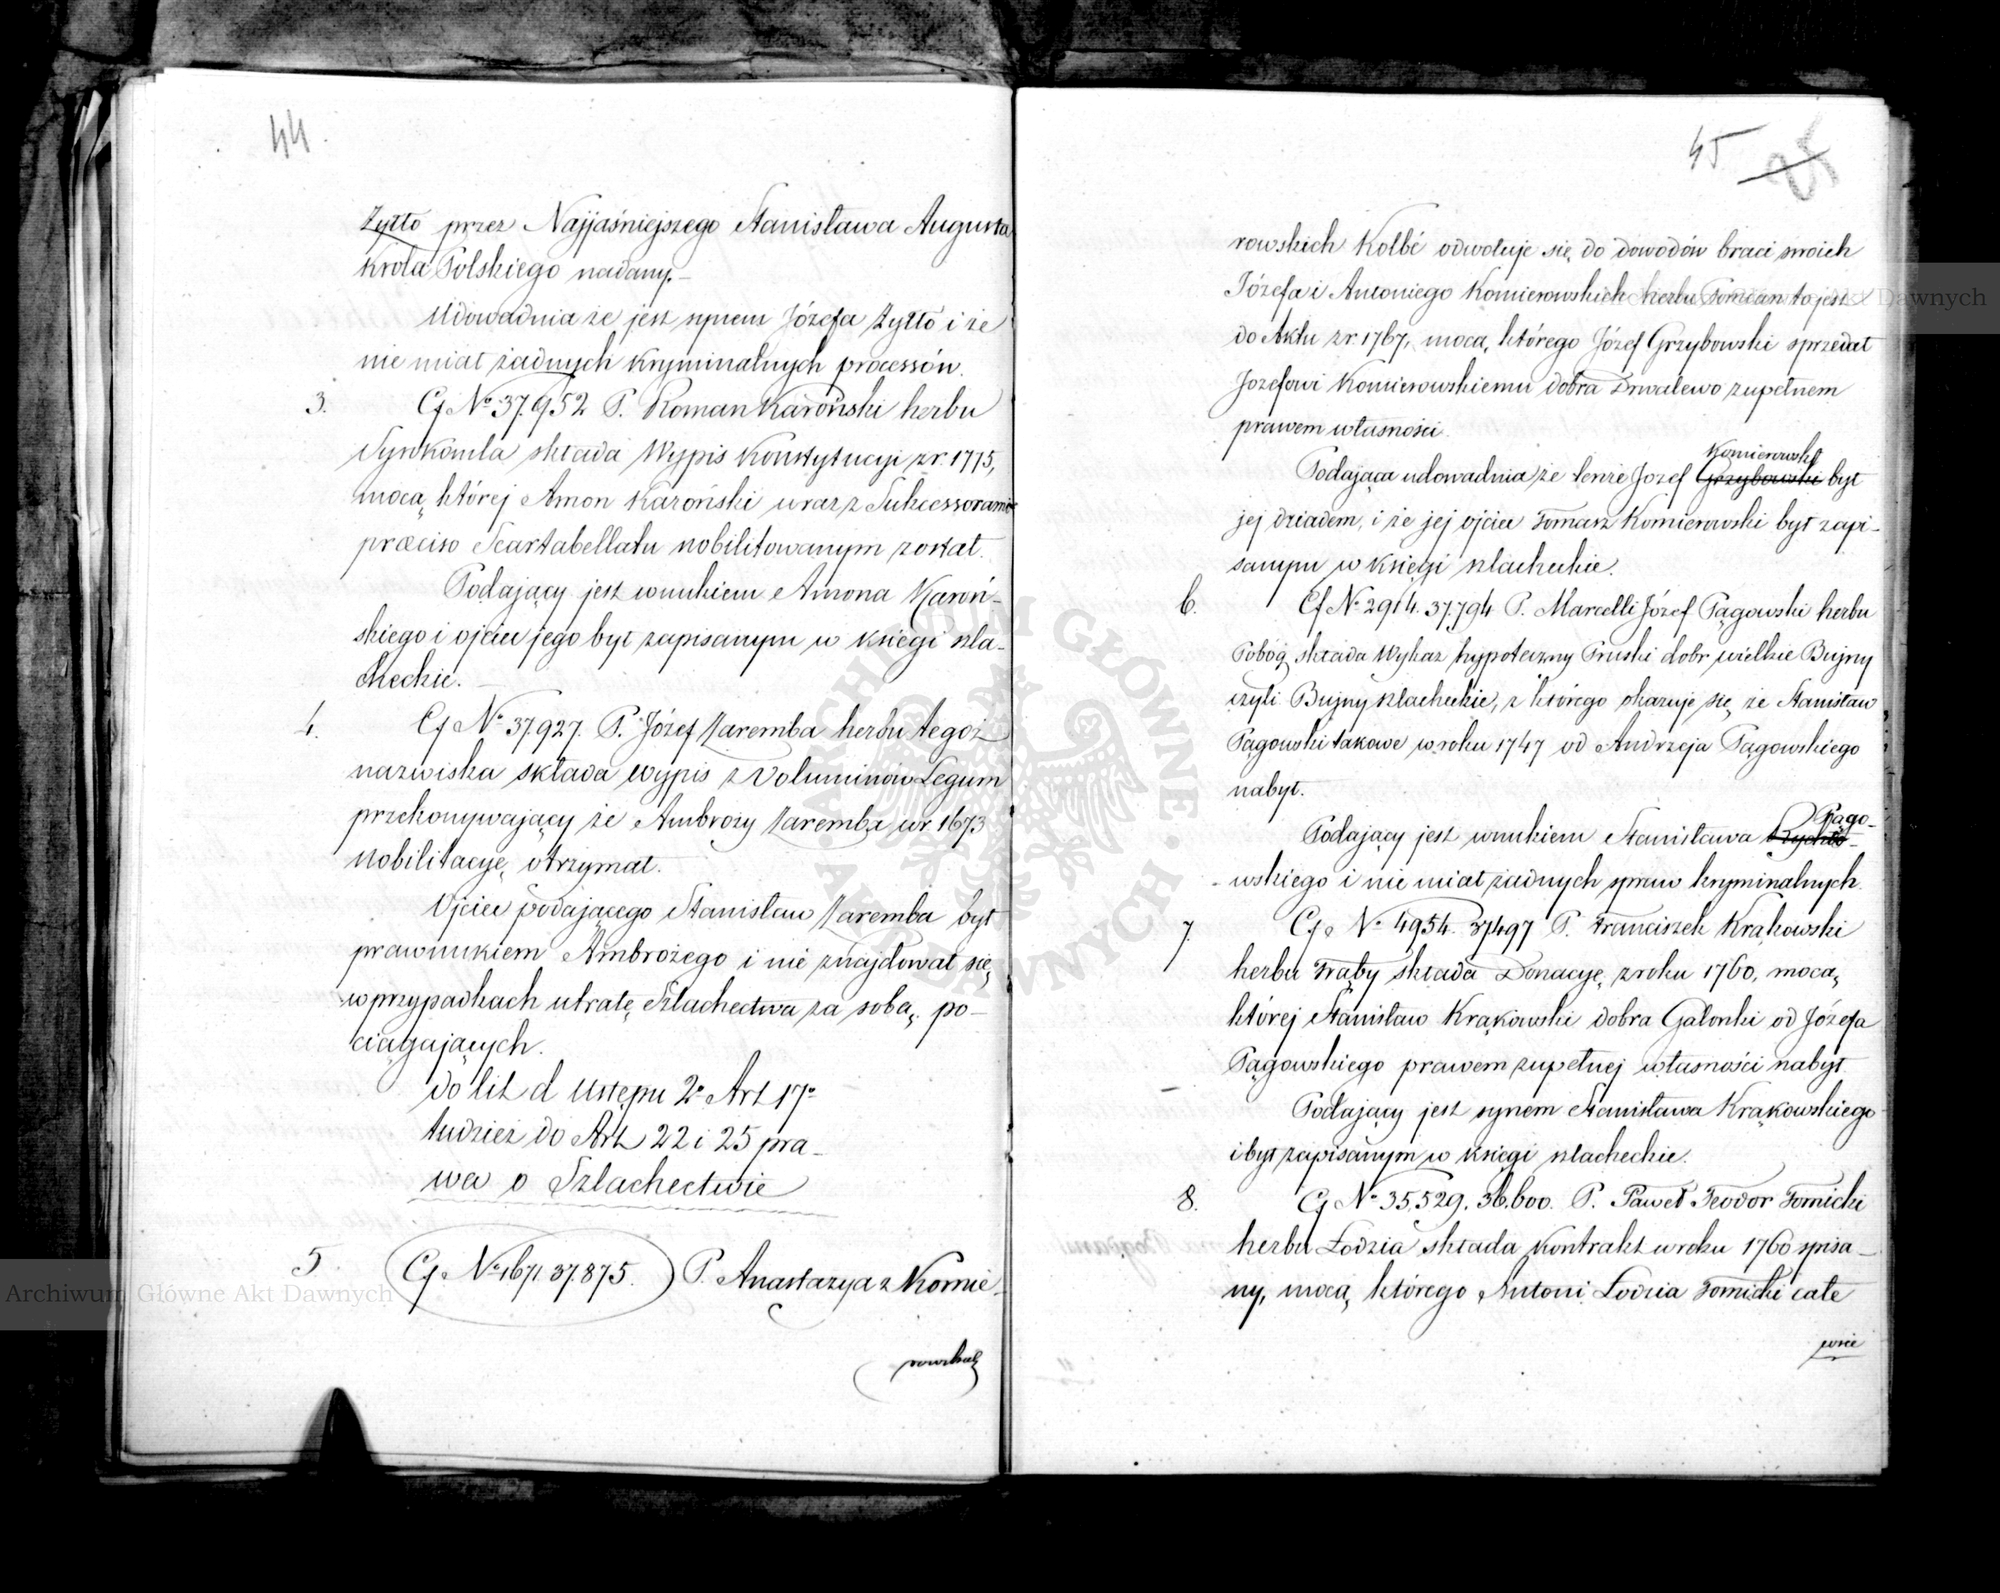 44.
Żyłło przez Najjaśniejszego Stanisława Augusta
Króla Polskiego nadany.—
Udowadnia że jest synem Józefa Żyłło i że
nie miał żadnych kryminalnych processów.
3. Cf Nº 37.952 P. Roman Karoński herbu
Syrokomla składa Wypis Konstytucyi z r. 1775,
mocą której Amon Karoński wraz z Sukcessorami
præciso Scartabellatu nobilitowanym został.
Podający jest wnukiem Amona Karoń-
skiego i ojciec jego był zapisanym w księgi szla-
checkie.—
4. Cf Nº 37.927. P. Józef Zaremba herbu tegoż
nazwiska składa wypis z Voluminów Legum
przekonywający że Ambroży Zaremba w r 1673
Nobilitacyę otrzymał.
Ojciec podającego Stanisław Zaremba był
prawnukiem Ambrożego i nie znajdował się
w przypadkach utratę Szlachectwa za sobą po-
ciągających.
do lit d Ustępu 2º Art 17º
tudzież do Art 22 i 25 pra-
wa o Szlachectwie
5. Cf Nº 1671 37.875. P. Anastazya z Komie-
rowskich
45 25
rowskich Kolbé odwołuje się do dowodów braci swoich
Józefa i Antoniego Komierowskich herbu Pomian to jest
do Aktu z r. 1767, mocą którego Józef Grzybowski sprzedał
Józefowi Komierowskiemu dobra Drwalewo zupełnem
prawem własności.
Komierowski
Podająca udowadnia że tenże Józef Grzybowski był
jej dziadem, i że jej ojciec Tomasz Komierowski był zapi-
sanym w księgi szlacheckie.
6. Cf Nº 2914. 37.794 P. Marcelli Józef Pągowski herbu
Pobóg składa Wykaz hypoteczny Pruski dobr wielkie Bujny
czyli Bujny szlacheckie, z którego okazuje się, że Stanisław
Pągowski takowe w roku 1747 od Andrzeja Pągowskiego
nabył.
Pągo-
Podający jest wnukiem Stanisława
-wskiego i nie miał żadnych spraw kryminalnych.
7. Cf. Nº 4954. 37497 P. Franciszek Krąkowski
herbu Trąby składa Donacyę z roku 1760, mocą
której Stanisław Krąkowski dobra Galonki od Józefa
Pągowskiego prawem zupełnej własności nabył.
Podający jest synem Stanisława Krąkowskiego
i był zapisanym w księgi szlacheckie.
8. Cf Nº 35.529. 36.600. P. Paweł Teodor Tomicki
herbu Łodzia składa Kontrakt w roku 1760 spisa-
ny, mocą którego Antoni Łodzia Tomicki całe
wsie
Archiwum Główne Akt Dawnych
Archiwum Główne Akt Dawnych
ARCHIWUM GŁÓWNE · AKT DAWNYCH ·